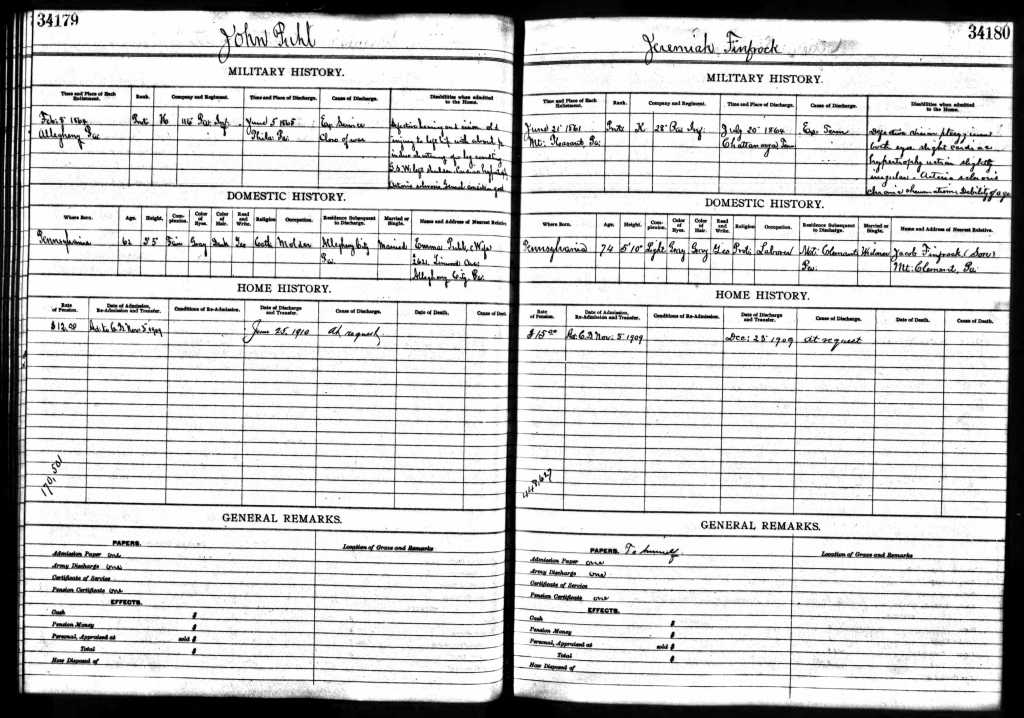 34179
John Puhl
MILITARY HISTORY.
Time and Place of Each Enlistment.
Rank.
Company and Regiment.
Time and Place of Discharge.
Cause of Discharge.
Disabilities when admitted to the Home.
Feb. 5 1864
Allegheny Pa
Prvt
K
116 Pa Inf
June 5 1865
Phila Pa.
Exp Service
Close of war
DOMESTIC HISTORY.
Where Born.
Age.
Height.
Complexion.
Color of Eyes.
Color of Hair.
Read and Write.
Religion
Occupation.
Residence Subsequent to Discharge.
Married or Single.
Name and Address of Nearest Relative.
Pennsylvania
62
Fair
Gray
Dark
Yes
Cath
Molder
Allegheny City
Pa.
Married
Emma Puhl (Wife
Ave
Allegheny City, Pa.
HOME HISTORY.
Rate of Pension.
Date of Admission, Re-Admission and Transfer.
Conditions of Re-Admission.
Date of Discharge and Transfer.
Cause of Discharge.
Date of Death.
Cause of Deat
$12.00
C.D. Nov. 5 1909
June 25, 1910
At request
170,501
GENERAL REMARKS.
PAPERS.
Admission Paper one
Army Discharge one
Certificate of Service
Pension Certificate one
EFFECTS.
Cash $
Pension Money $
Personal, Appraised at sold $
Total $
How Disposed of
Location of Grave and Remarks
34180
Jeremiah Finfrock
MILITARY HISTORY.
Time and Place of Each Enlistment.
Rank.
Company and Regiment.
Time and Place of Discharge.
Cause of Discharge.
Disabilities when admitted to the Home.
June 21 1861
Mt. Pleasant, Pa.
Prvt
K
28 Pa Inf
July 20 1864
Chattanooga Tenn
Exp Term
Defective vision pterygium
both eyes slight cardiac
hypertrophy action slightly
irregular - Arterio sclerosis
chronic rheumatism. Debility of age
DOMESTIC HISTORY.
Where Born.
Age.
Height.
Complexion.
Color of Eyes.
Color of Hair.
Read and Write.
Religion.
Occupation.
Residence Subsequent to Discharge.
Married or Single.
Name and Address of Nearest Relative.
Pennsylvania
74
5'10"
Light
Gray
Gray
Yes
Prot.
Laborer
Mt. Clement
Pa.
Widower
Jacob Finfrock (Son)
Mt. Clement, Pa.
HOME HISTORY.
Rate of Pension.
Date of Admission, Re-Admission and Transfer.
Conditions of Re-Admission.
Date of Discharge and Transfer.
Cause of Discharge.
Date of Death.
Cause of Death.
$15.00
C.D Nov. 5 1909
Dec. 23 1909
At request
448,627
GENERAL REMARKS.
PAPERS. To himself
Admission Paper one
Army Discharge one
Certificate of Service
Pension Certificate one
EFFECTS.
Cash $
Pension Money $
Personal, Appraised at sold $
Total $
How Disposed of
Location of Grave and Remarks